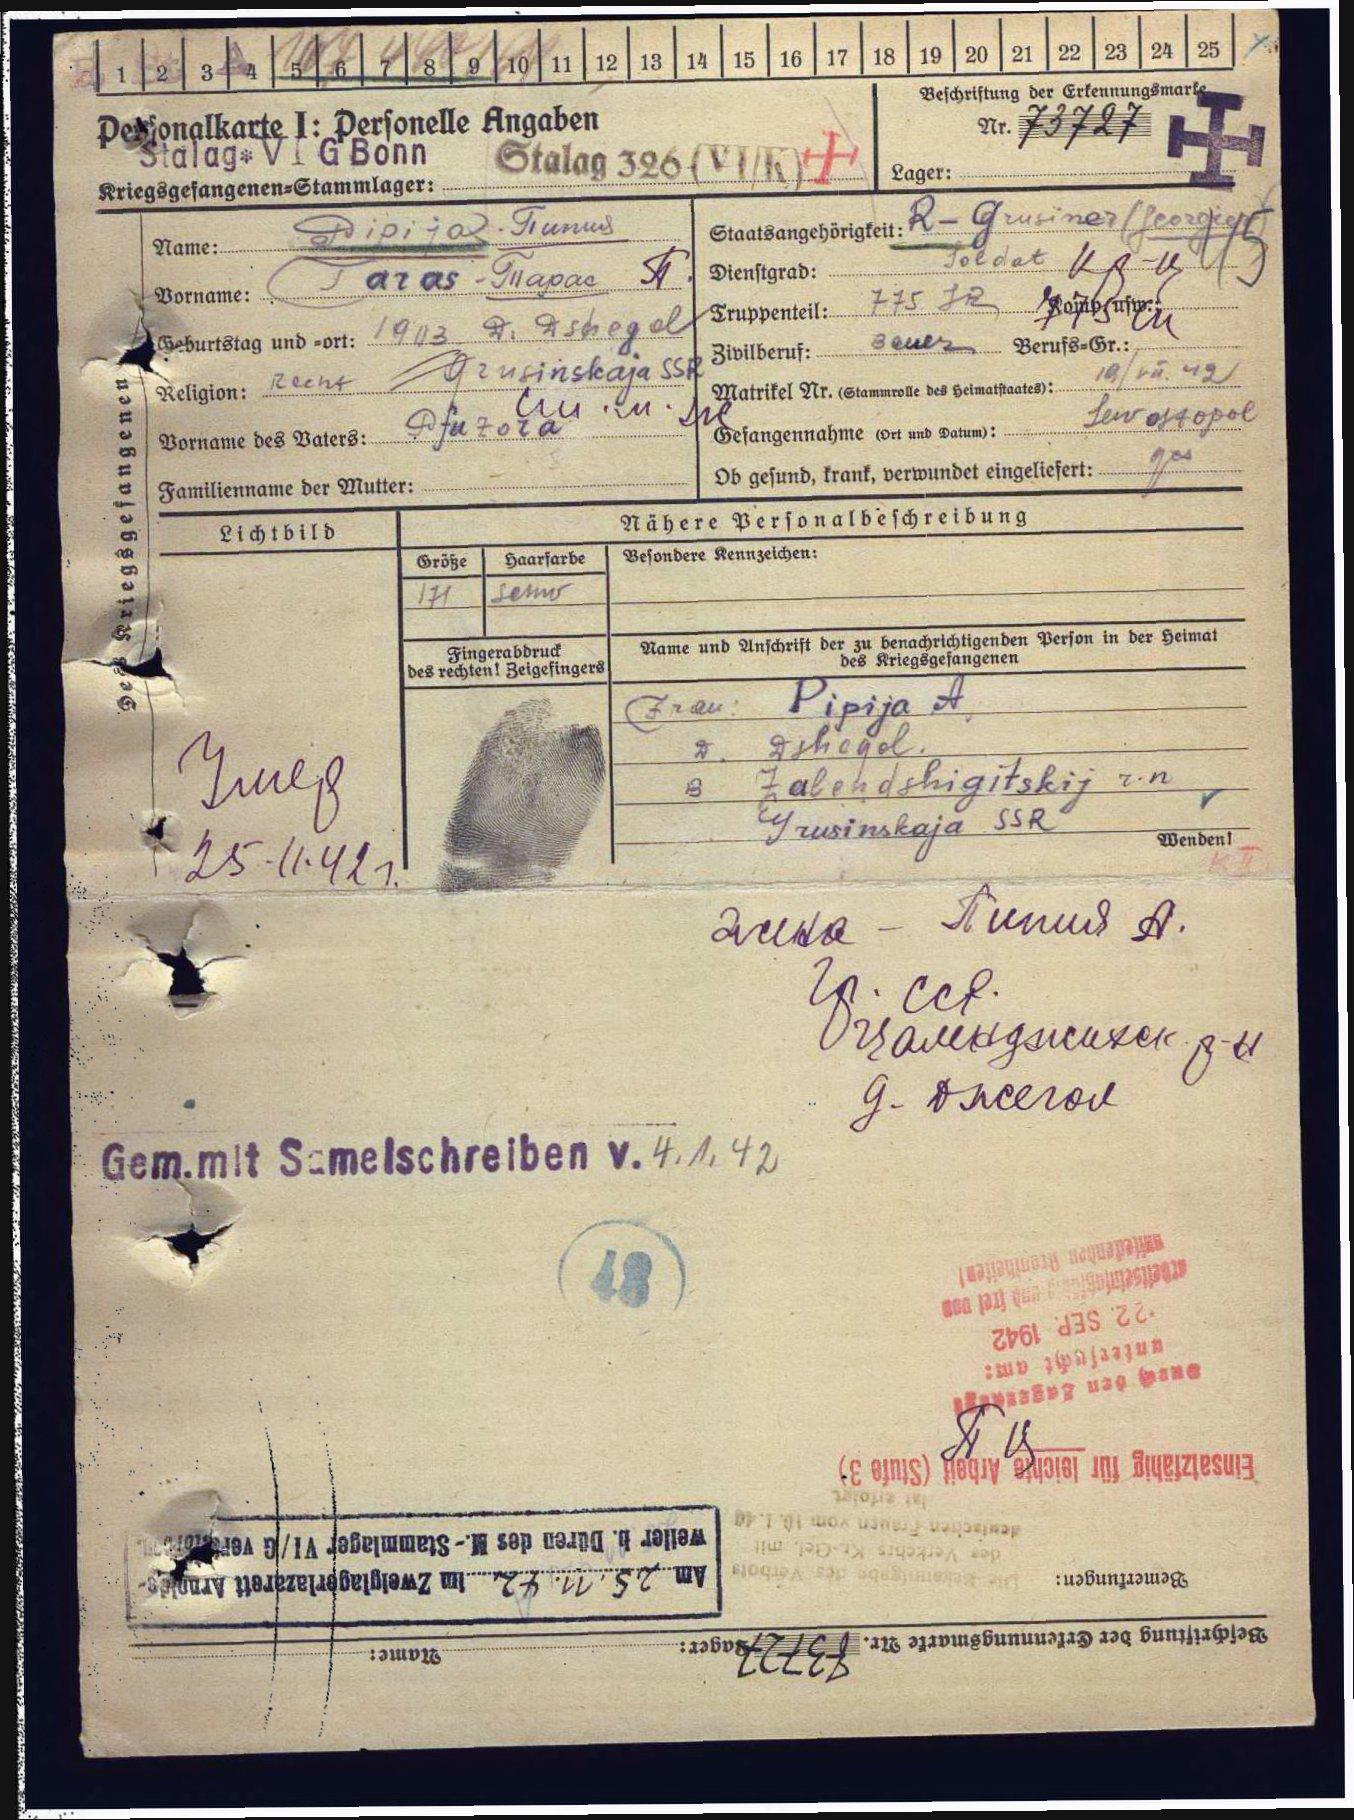 1 2 3 4 5 6 7 8 9 10 11 12 13 14 15 16 17 18 19 20 21 22 23 24 25
Personalkarte I: Personelle Angaben
Stalag VI G Bonn
Stalag 326 (VI/K)
Kriegsgefangenen-Stammlager:
Beschriftung der Erkennungsmarke
Nr. 73727
Lager:
Des Kriegsgefangenen
Name: Pipija - Пипия
Vorname: Taras - Тарас П.
Geburtstag und -ort: 1903 D. Dshegol
Grusinskaja SSR
Religion:
Vorname des Vaters:
Familienname der Mutter:
Staatsangehörigkeit: R - Grusiner (Georgier)
Dienstgrad: Soldat
Truppenteil: 775 IR Komp. usw.:
Zivilberuf: Bauer Berufs-Gr.:
Matrikel Nr. (Stammrolle des Heimatstaates):
Gefangennahme (Ort und Datum): Sewostopol
Ob gesund, krank, verwundet eingeliefert: ges
Lichtbild
Nähere Personalbeschreibung
Größe Haarfarbe Besondere Kennzeichen:
171 schw
Fingerabdruck
des rechten! Zeigefingers
Name und Anschrift der zu benachrichtigenden Person in der Heimat
des Kriegsgefangenen
Frau: Pipija A.
D. Dshegol.
Zalendshigitskij r-n
Grusinskaja SSR
Wenden!
Умер
25.11.42 г.
жена - Пипия А.
Гр. ССР.
Цаленджихск р-н
д. Джегол
Gem. mit Samelschreiben v. 4.1.42
48
Durch den Lagerarzt
untersucht am:
22. SEP. 1942
arbeitseinsatzfähig und frei von
ansteckenden Krankheiten!
Einsatzfähig für leichte Arbeit (Stufe 3)
Die Bekanntgabe des Verbots
des Verkehrs Kr.-Gef. mit
deutschen Frauen vom 10.1.40
ist erfolgt
Bemerkungen:
Am 25.11.42 im Zweiglagerlazarett Arnolds-
weiler b. Düren des M.-Stammlager VI/G verstorben.
Beschriftung der Erkennungsmarke Nr. 73727 Lager:
Name: